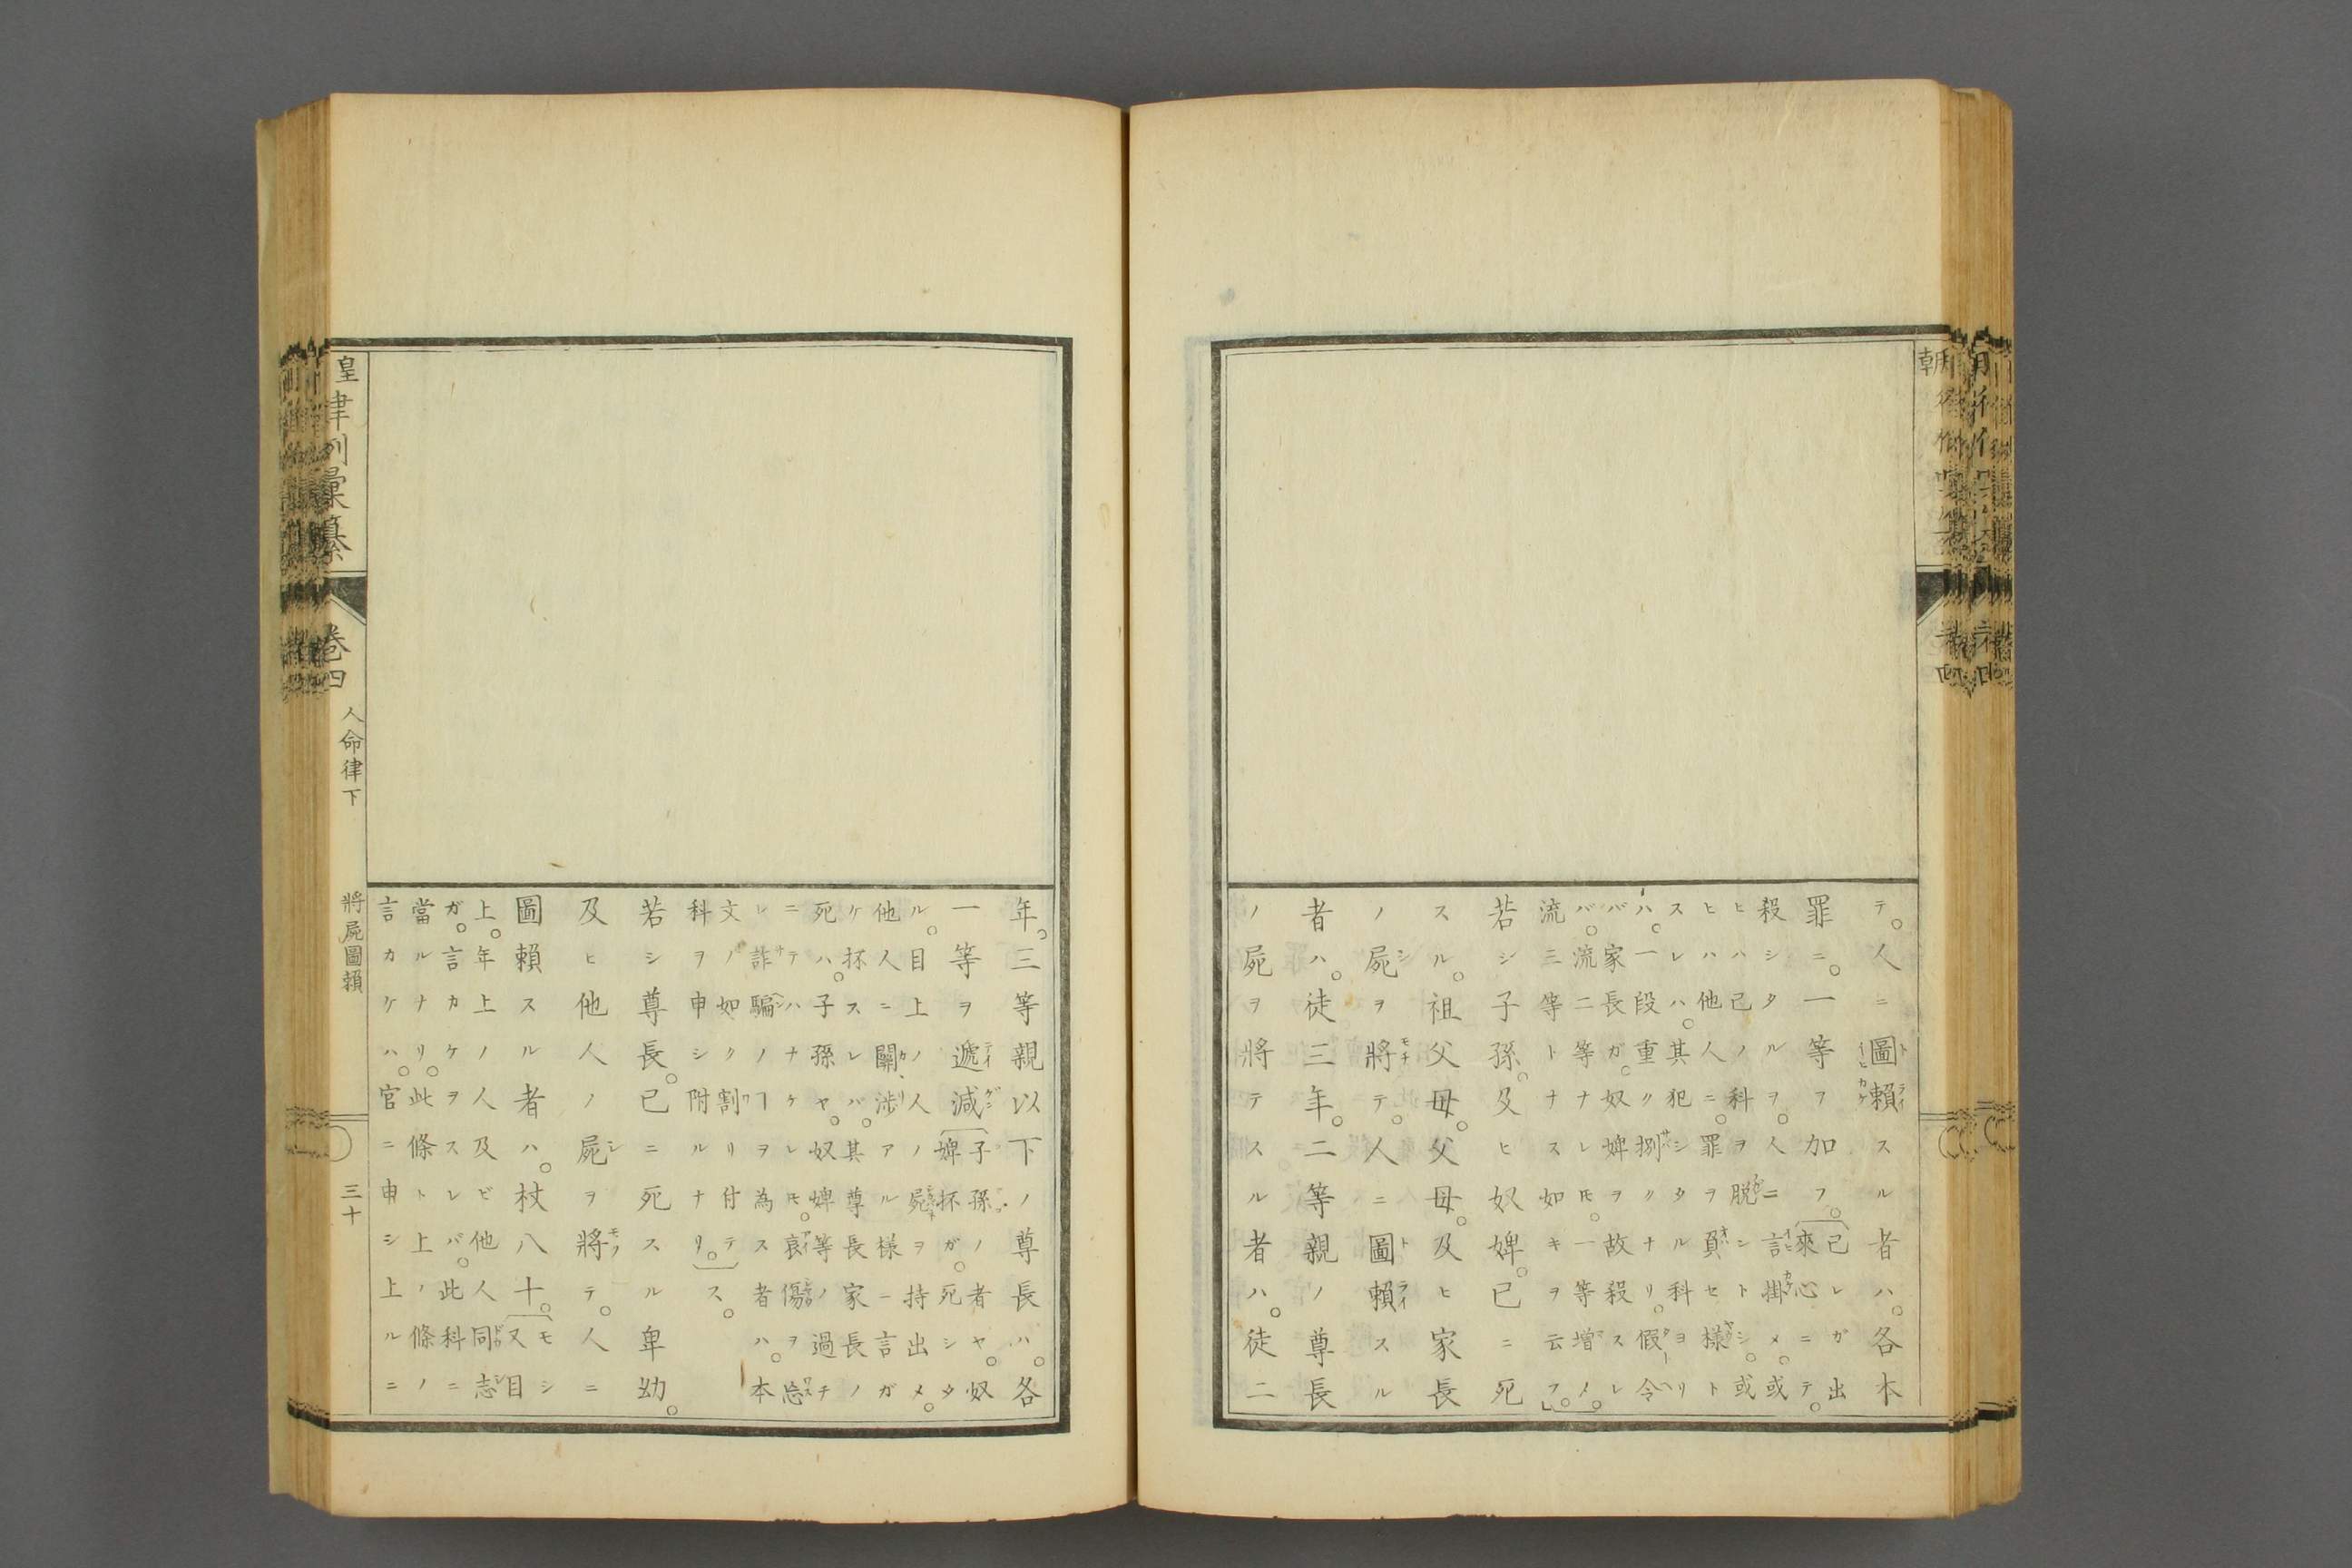 テ。人ニ圖賴スル者ハ。各本
罪ニ。一等フ加フ。已レガ出
來心ニテ。
殺シタルヲ。人ニ言掛メ。或
ヒハ己ノ科ヲ脱ントシ。或
ヒハ他人ニ。罪ヲ負セ樣ト
スレハ。其犯シタル科ヨリ
ハ。一段重ク捌クナリ。假令
バ家長ガ。奴婢ヲ故殺スレ
バ。流二等ナレ𪜈。一等增メ。
流三等トナス如キヲ云フ。
若シ子孫。及ヒ奴婢。已ニ死
スル。祖父母。父母。及ヒ家長
ノ屍ヲ將テ。人ニ圖賴スル
者ハ。徒三年。二等親ノ尊長
ノ屍ヲ將テスル者ハ。徒二
年。三等親以下ノ尊長ハ。各
一等ヲ遞減子孫ノ者ヤ。奴
婢抔ガ。死シタ
ル。目上ノ人ノ屍ヲ持出メ。
他人ニ關涉アル樣ニ言ガ
ケ抔スレバ。其尊長家長ノ
死ハ。子孫ヤ。奴婢等ノ過チ
ニテハナケレ𪜈。哀傷ヲ忘
レ詐騙ノヿヲ為ス者ハ。本
文ノ如ク割リ付テ
科ヲ申シ附ルナリ。ス。
若シ尊長。已ニ死スル卑幼。
及ヒ他人ノ屍ヲ將テ。人ニ
圖賴スル者ハ。杖八十。モシ
又目
上。年上ノ人及ビ他人同志
ガ。言カケヲスレバ。此科ニ
當ルナリ。此條ト上ノ條ノ
言カケハ。官ニ申シ上ルニ
皇律例彙纂 卷四 人命律下 將屍圖賴 三十